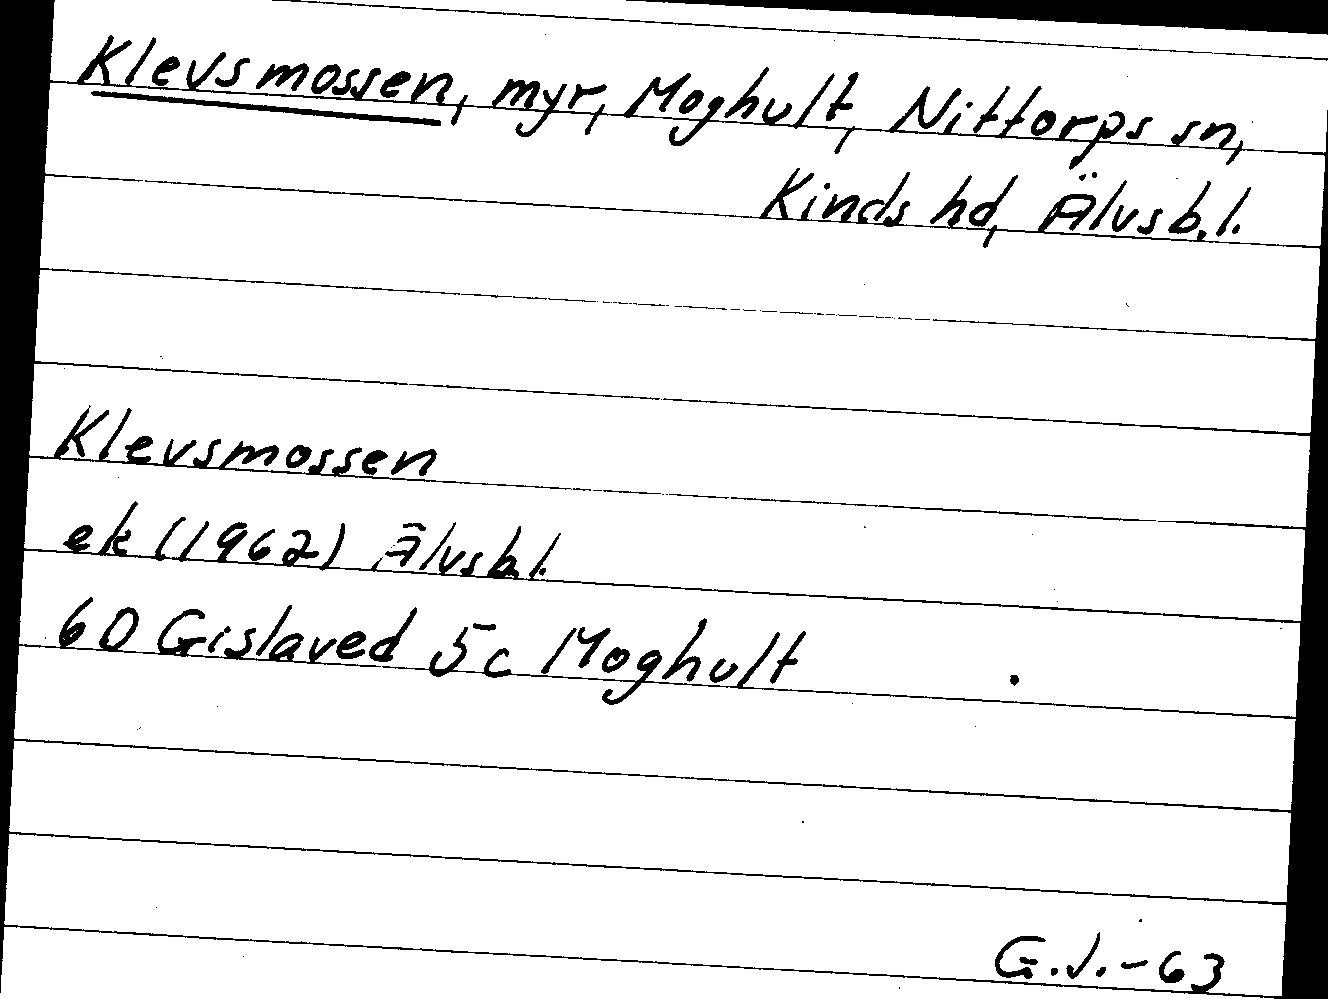 Klevsmossen, myr, Moghult, Nittorps sn,
Kinds hd, Älvsb.l.
Klevsmossen
ek (1962) Älvsb.l.
6D Gislaved 5c Moghult
G.J.-63